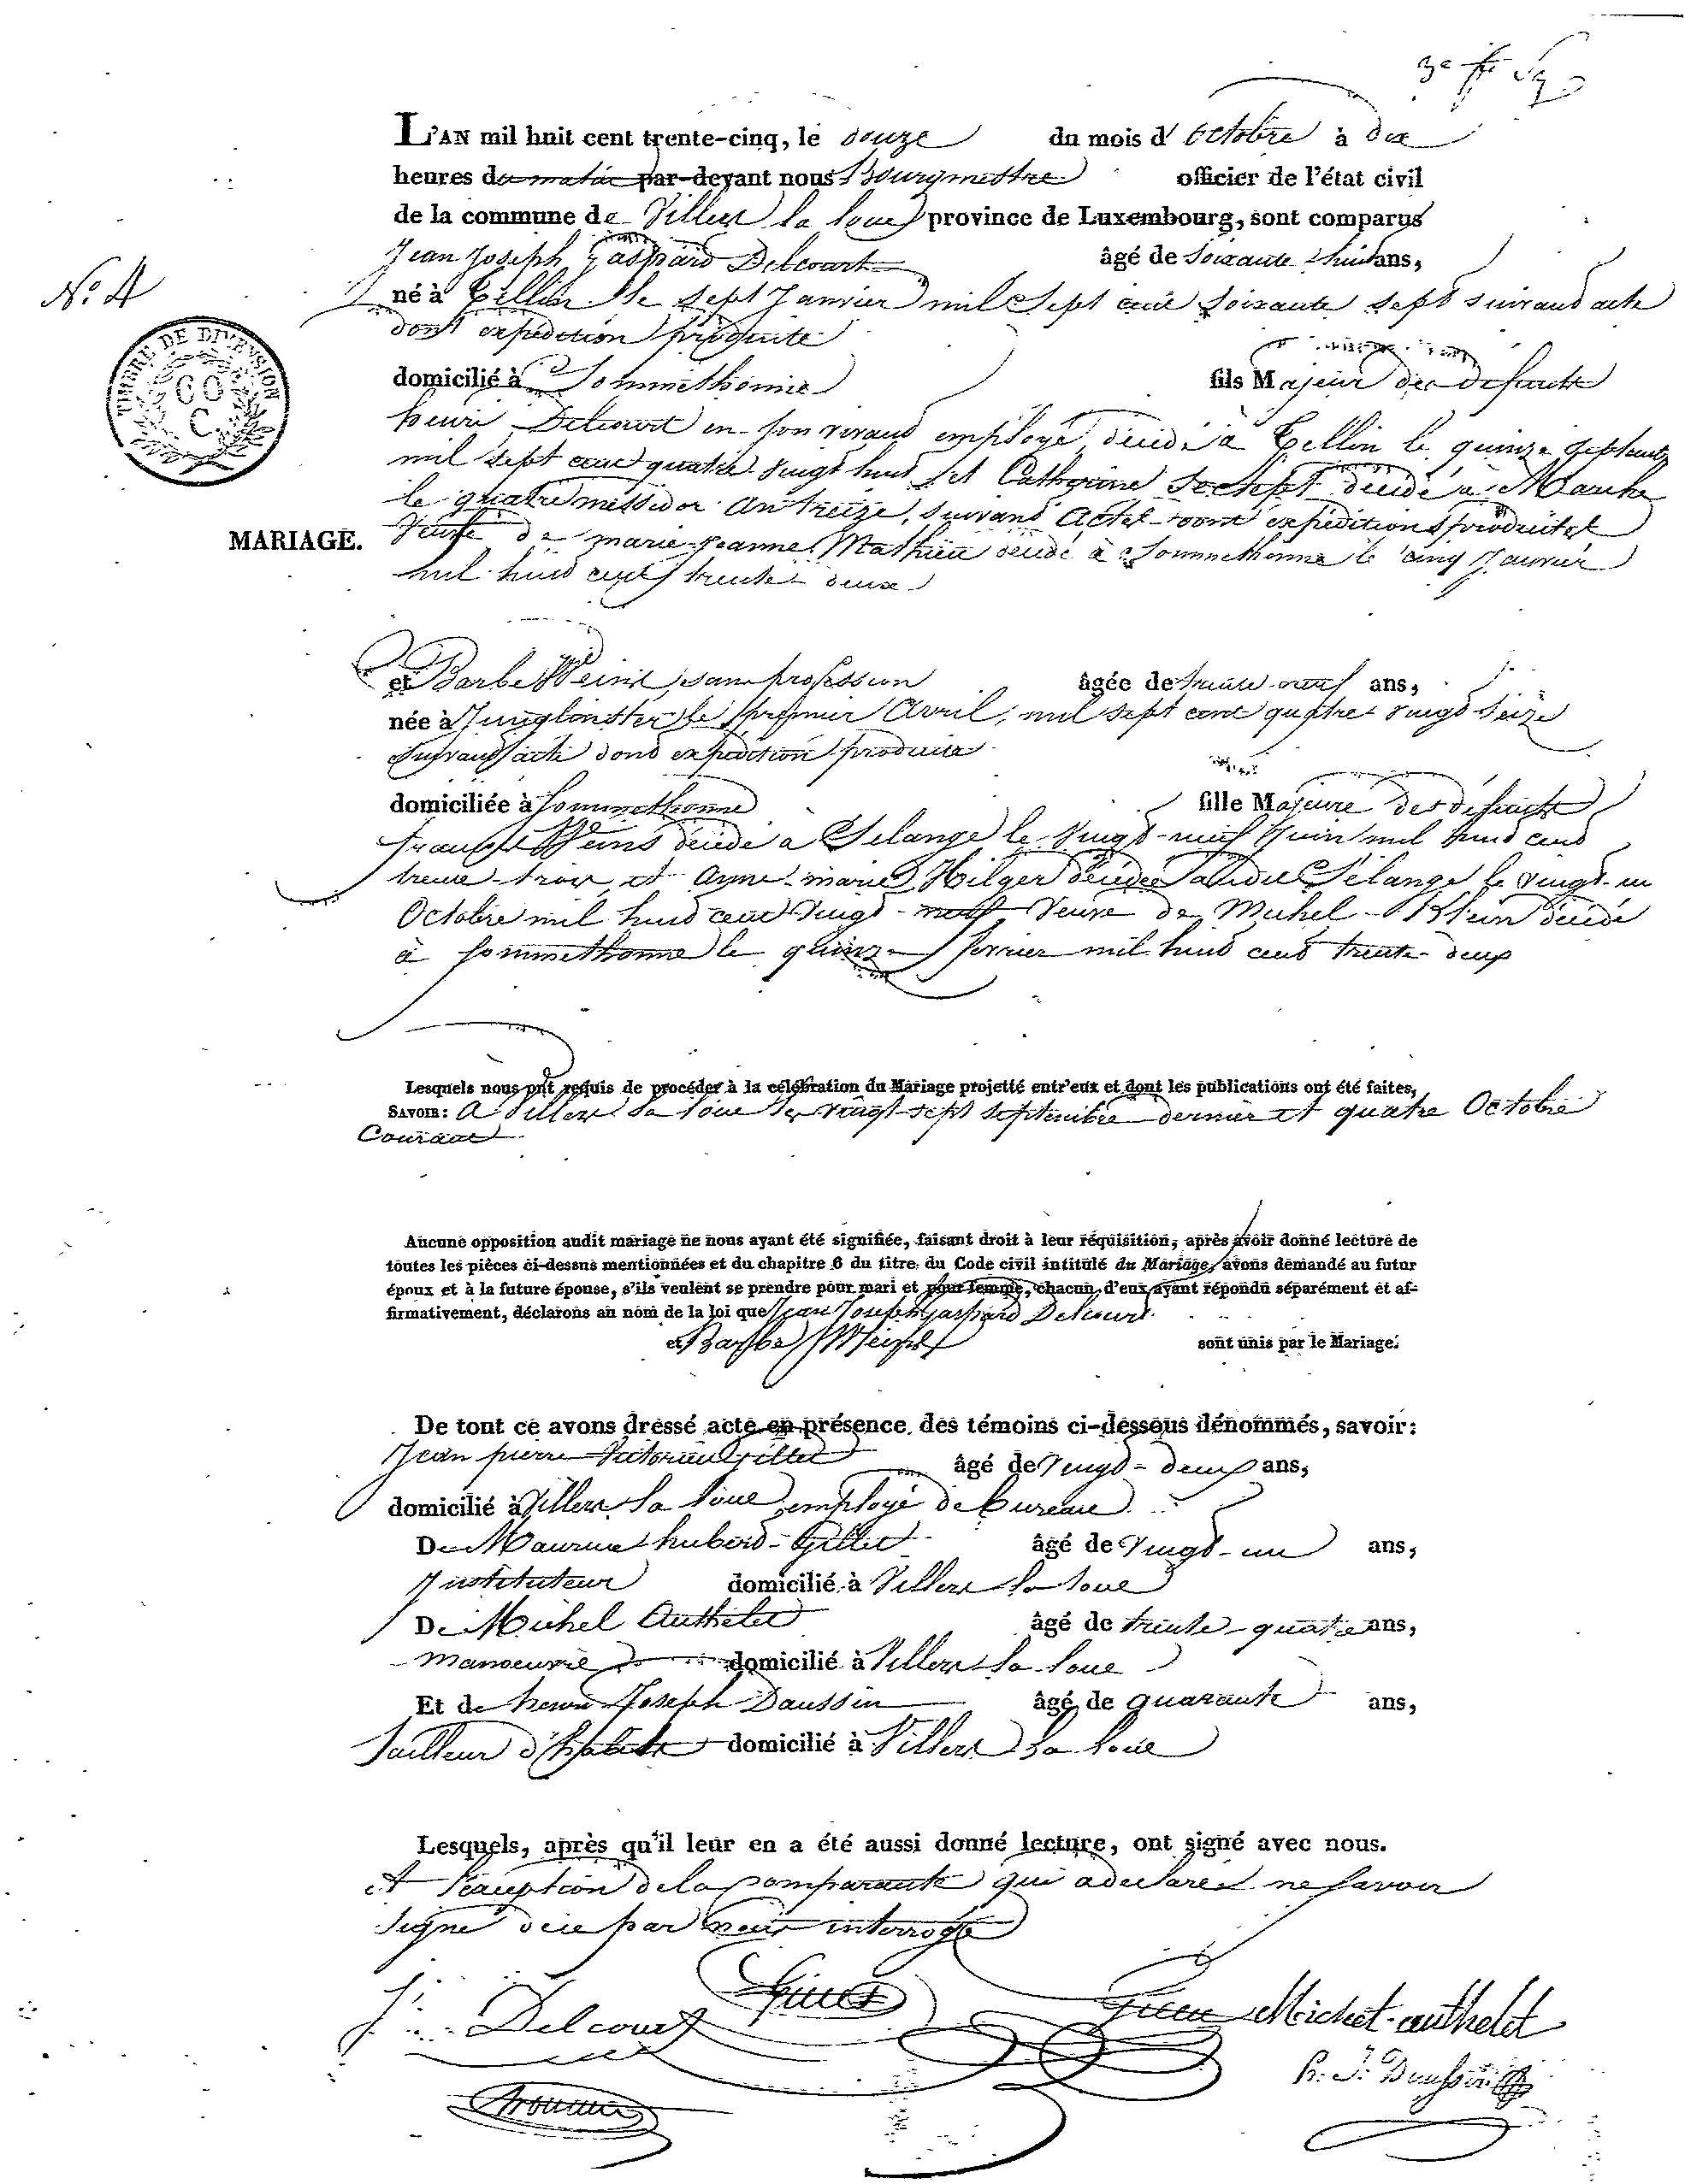 3e
L'AN mil huit cent trente-cinq, le douze du mois d'octobre à dix
heures du matin par-devant nous Bourgmestre officier de l'état civil
de la commune de Villers la loue province de Luxembourg, sont comparus
Jean Joseph Gaspard Delcourt âgé de soixante huit ans,
N.o 4
né à Tellin le sept Janvier mil sept cent soixante sept suivant acte
dont expédition produite
TIMBRE DE DIMENSION
60
C.
domicilié à Sommethonne fils Majeur des defunts
henri Delcourt en son vivant employé, décédé à Tellin le quinze septembre
mil sept cent quatre vingt huit et Catherine décédé à Marche
le quatre messidor an treize, suivant actes dont expéditions produites
MARIAGE.
Veuf de marie jeanne Mathieu décédé à Sommethonne le cinq Janvier
mil huit cent trente deux
et Barbe Weins, sans profession âgée de trente neuf ans,
née à Junglinster le premier Avril, mil sept cent quatre vingt seize
suivant acte dont expédition produite
domiciliée à Sommethonne fille Majeure des défunts
français Weins décédé à Sélange le vingt-neuf Juin mil huit cent
trente trois et anne marie Hilger décédée audit Sélange le vingt-un
Octobre mil huit cent vingt-neuf Veuve de Michel Klein décédé
à sommethonne le quinze fevrier mil huit cent trente-deux
Lesquels nous ont requis de procéder à la célébration du Mariage projetté entr'eux et dont les publications ont été faites,
SAVOIR: A Villers la loue les vingt-sept septembre dernier et quatre Octobre
Courant
Aucune opposition audit mariage ne nous ayant été signifiée, faisant droit à leur réquisition, après avoir donné lecture de
toutes les pièces ci-dessus mentionnées et du chapitre 6 du titre du Code civil intitulé du Mariage, avons demandé au futur
époux et à la future épouse, s'ils veulent se prendre pour mari et pour femme, chacun d'eux ayant répondu séparément et af-
firmativement, déclarons au nom de la loi que Jean Joseph Gaspard Delcourt
et Barbe Weins sont unis par le Mariage.
De tout ce avons dressé acte en présence des témoins ci-dessous dénommés, savoir:
Jean pierre Victorien Gillet âgé de Vingt-deux ans,
domicilié à Villers la loue employé de bureau
De Maurice hubert Gillet âgé de Vingt-un ans,
Instituteur domicilié à Villers la loue
De Michel Authelet âgé de trente-quatre ans,
manoeuvre domicilié à Villers la loue
Et de henri Joseph Daussin âgé de quarante ans,
Tailleur d'habits domicilié à Villers la loue
Lesquels, après qu'il leur en a été aussi donné lecture, ont signé avec nous.
et l'exception de la comparante qui a declaré ne savoir
signé de ce par nous interrogé
Delcourt Gillet Gillet Michel-authelet
h. J. Daussin